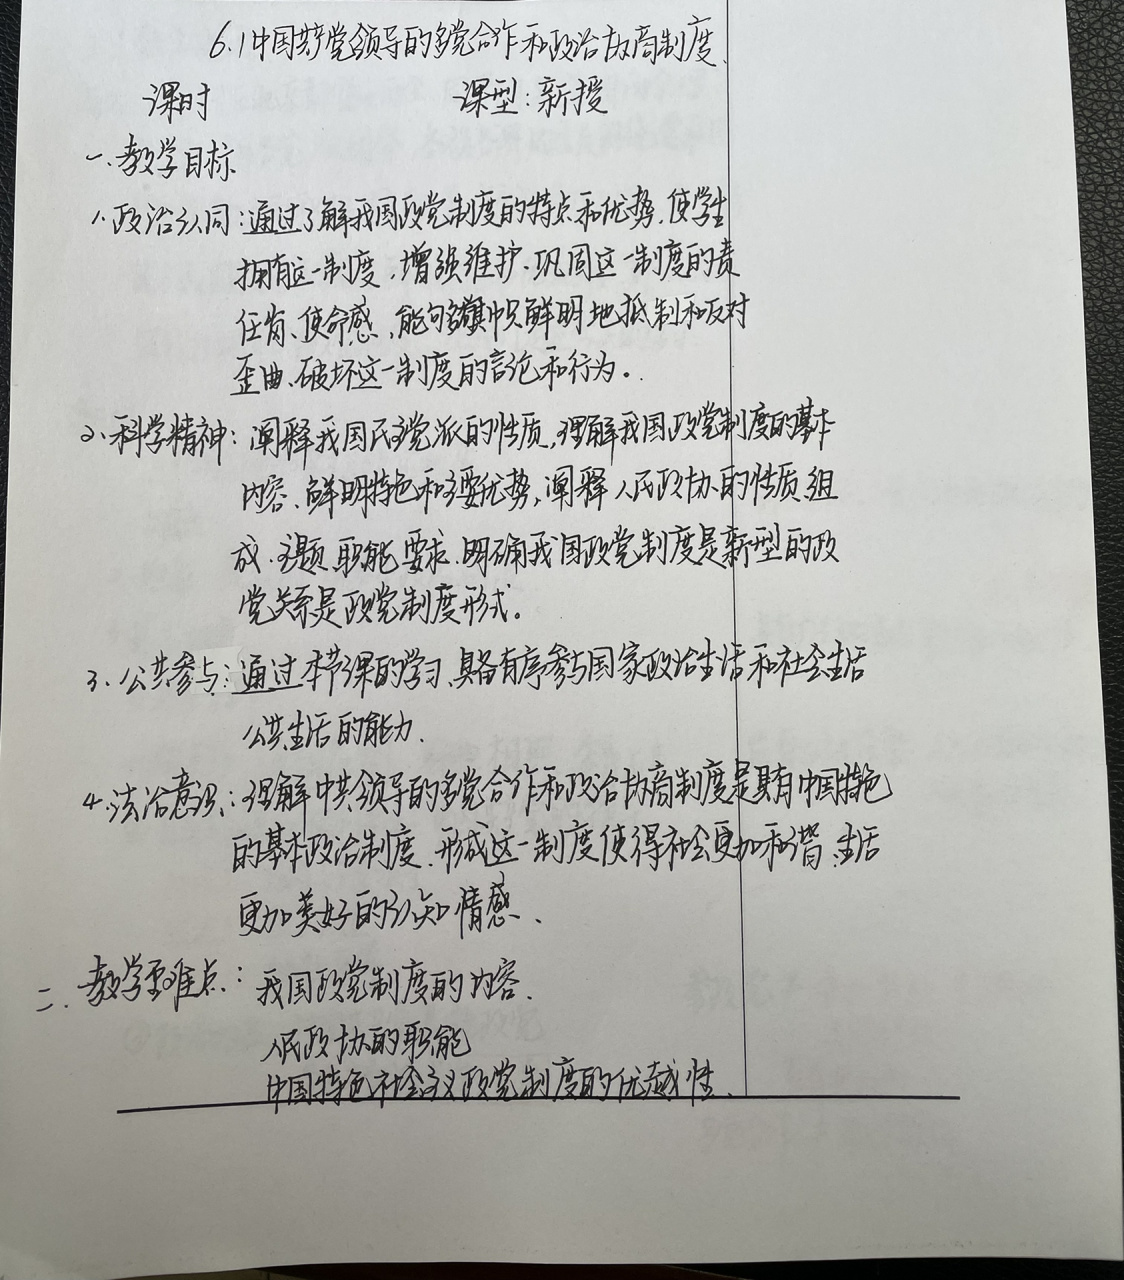 6.1中国共产党领导的多党合作和政治协商制度.
课时 课型:新授
一.教学目标
1.政治认同:通过了解我国政党制度的特点和优势.使学生
拥有这一制度,增强维护.巩固这一制度的责
任肯、使命感,能够旗帜鲜明地抵制和反对
歪曲、破坏这一制度的言论和行为.
2.科学精神:阐释我国民主党派的性质,理解我国政党制度的基本
内容、鲜明特色和主要优势,阐释人民政协的性质.组
成.主题.职能要求.明确我国政党制度是新型的政
党关系是政党制度形式。
3.公共参与:通过本节课的学习.具备有序参与国家政治生活和社会生活
公共生活的能力.
4.法治意识:理解中共领导的多党合作和政治协商制度是具有中国特色
的基本政治制度.形成这一制度使得社会更加和谐.生活
更加美好的认知情感.
二.教学重难点:我国政党制度的内容.
人民政协的职能
中国特色社会主义政党制度的优越性.